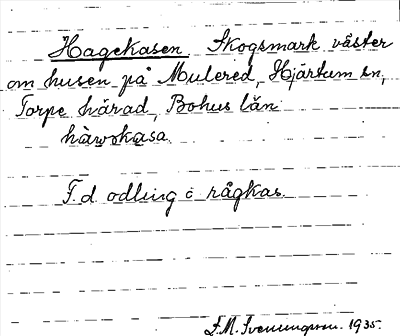 Hagekasen. Skogsmark väster
om husen på Mulered, Hjärtum sn,
Torpe härad, Bohus län
hàwokasa.
F. d. odling i rågkas.
E. M. Svenungsson. 1935.